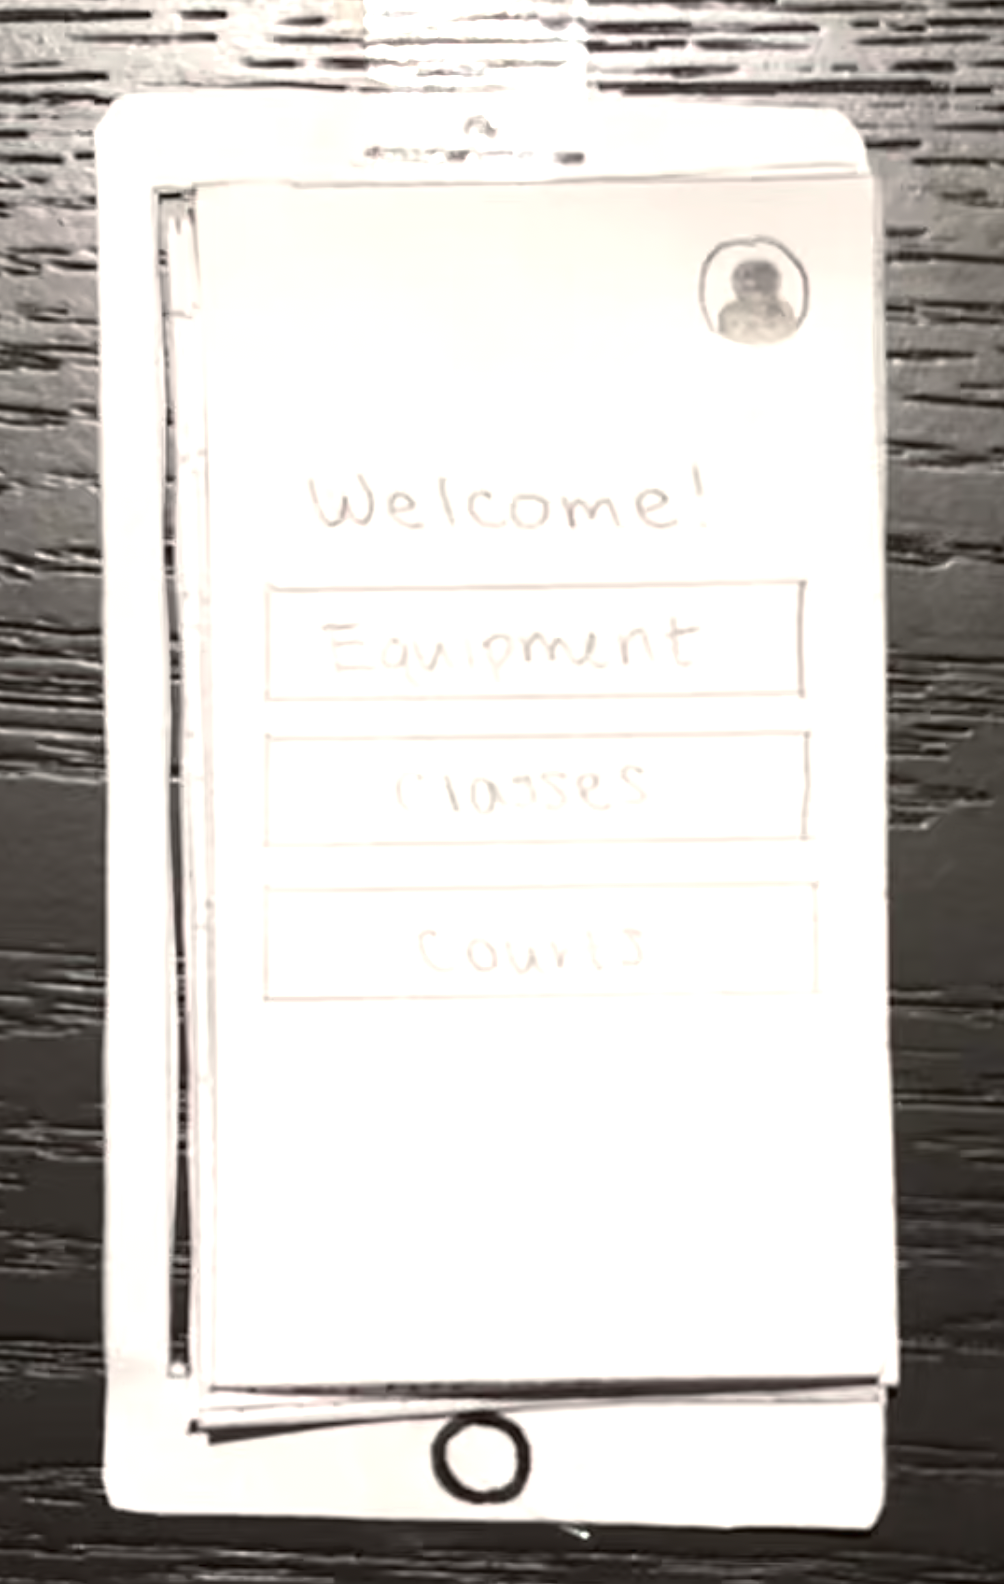 Welcome!
Equipment
Classes
Courts